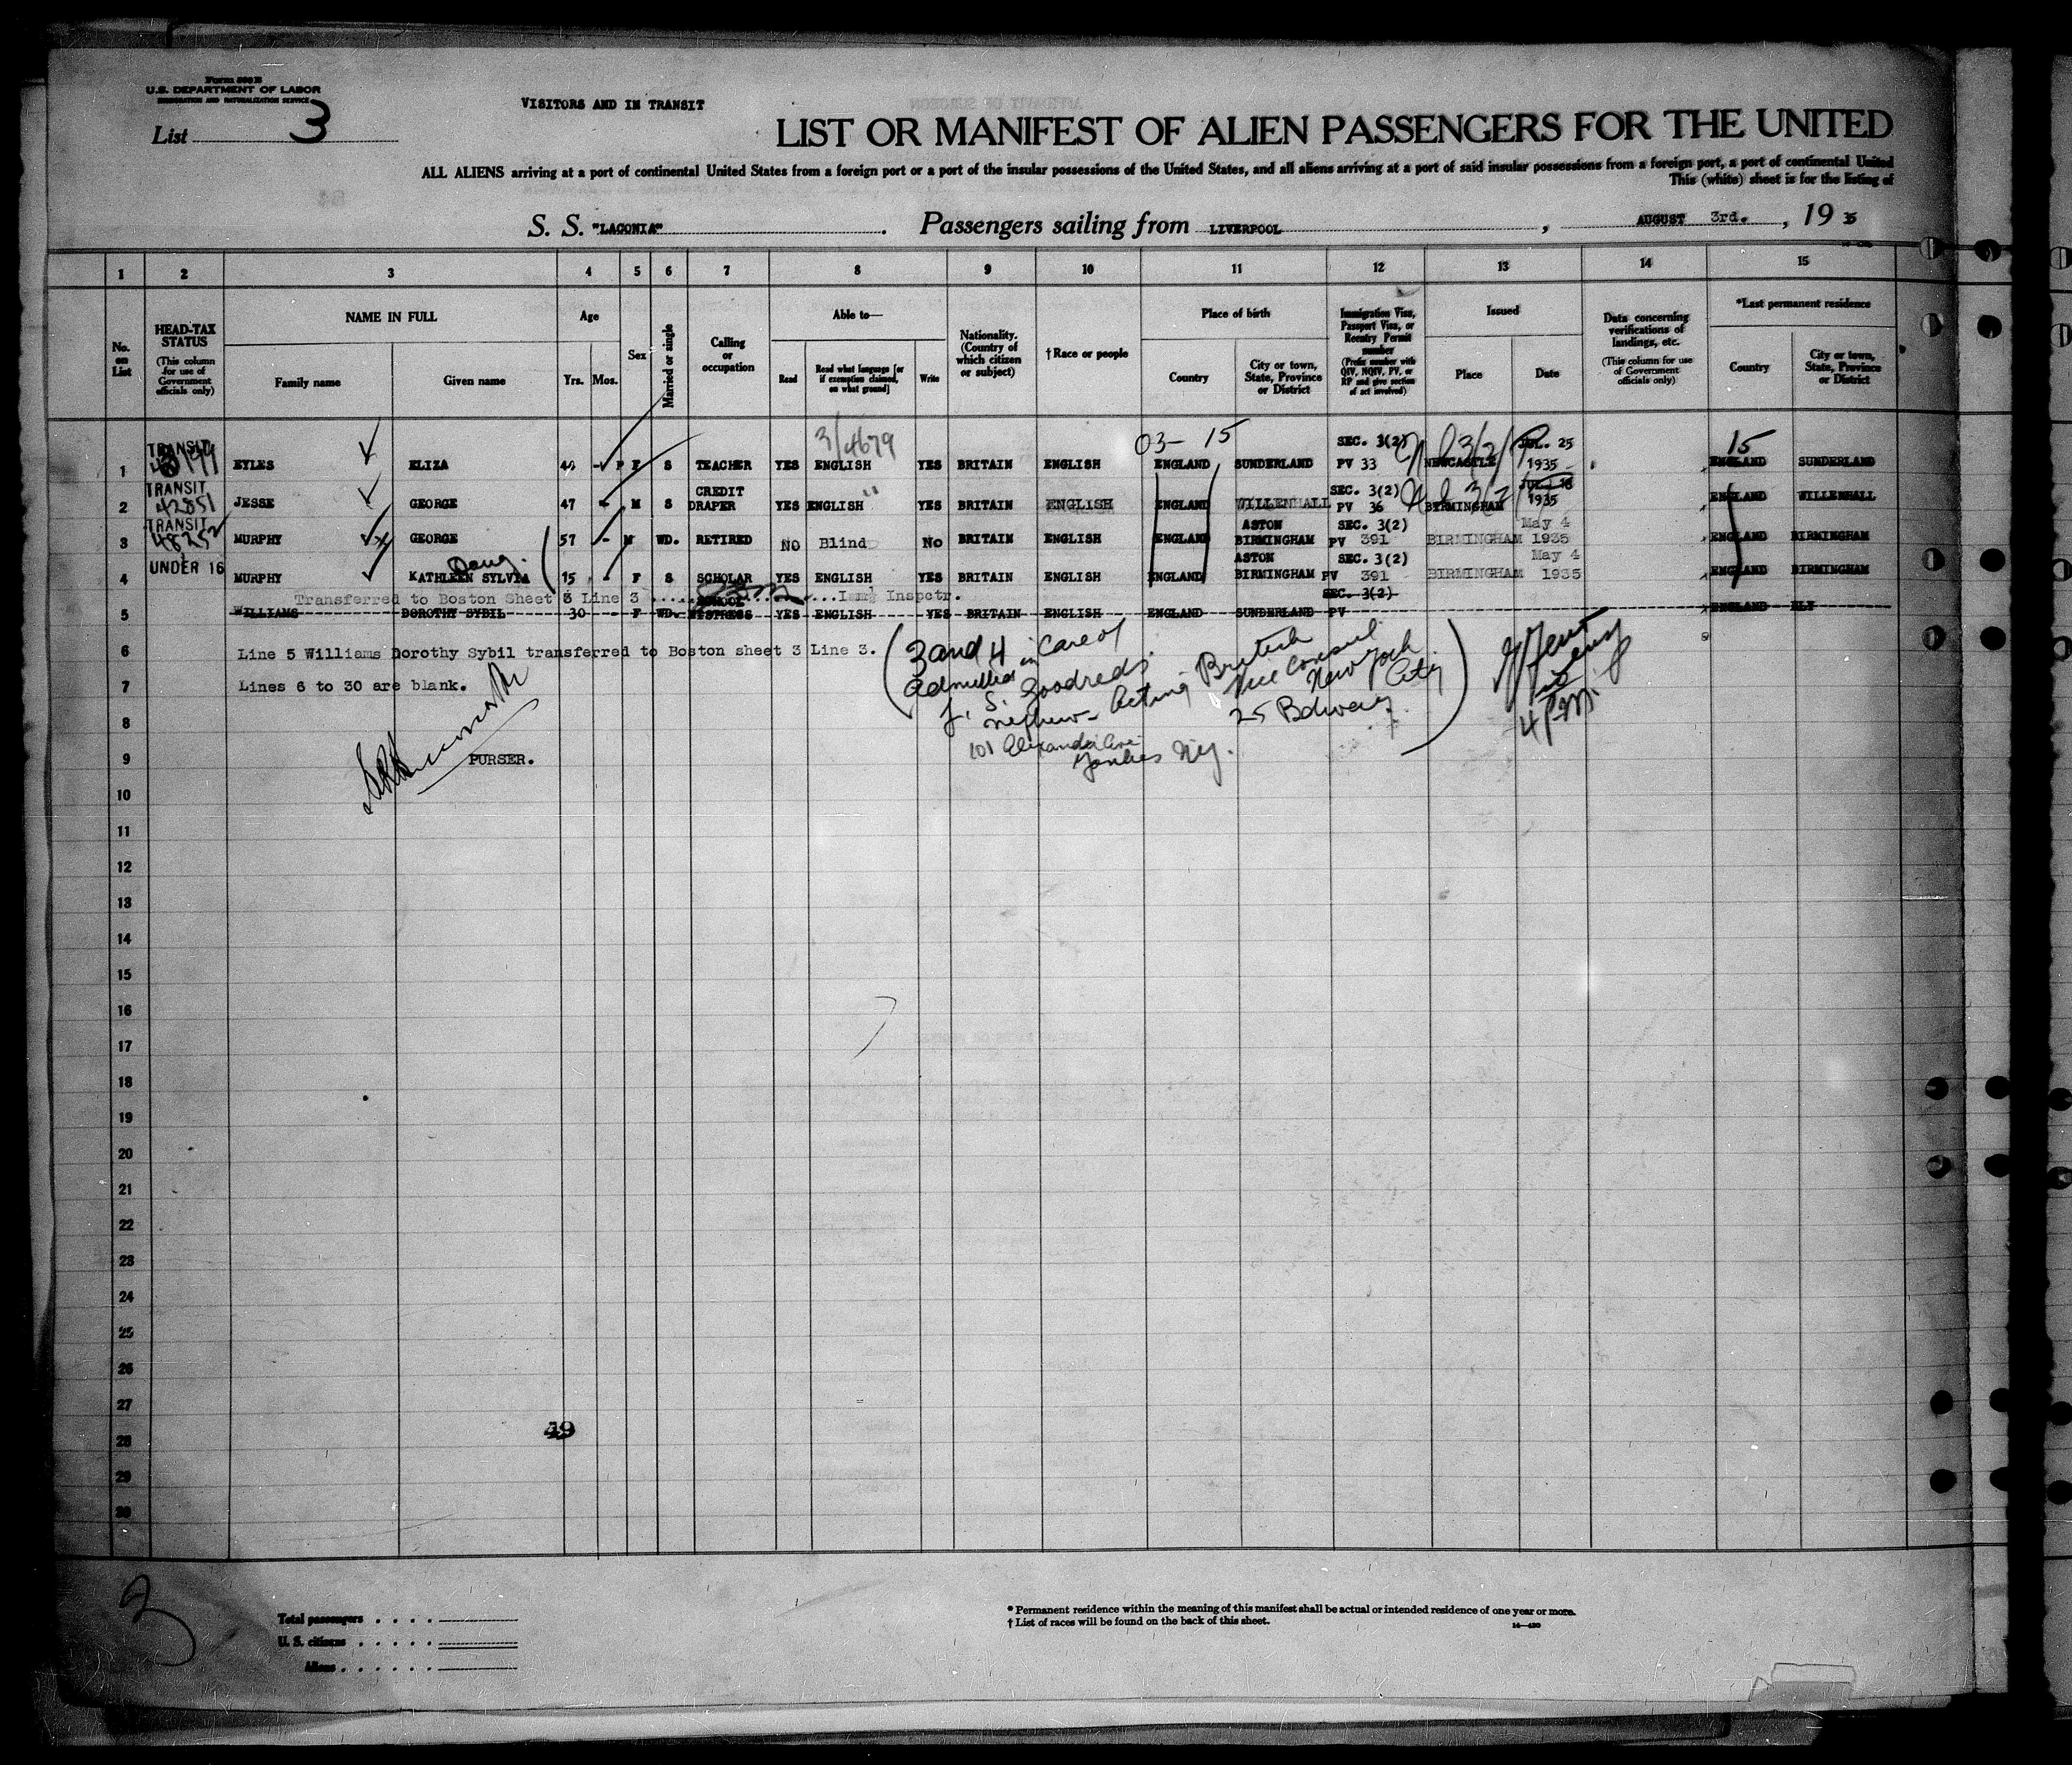 Form 500 B
U.S. DEPARTMENT OF LABOR
IMMIGRATION AND NATURALIZATION SERVICE
List 3
VISITORS AND IN TRANSIT
LIST OR MANIFEST OF ALIEN PASSENGERS FOR THE UNITED
ALL ALIENS arriving at a port of continental United States from a foreign port or a port of the insular possessions of the United States, and all aliens arriving at a port of said insular possessions from a foreign port, a port of continental United
This (white) sheet is for the listing of
S. S. "LACONIA". Passengers sailing from LIVERPOOL, AUGUST 3rd., 19 35
1 2 3 4 5 6 7 8 9 10 11 12 13 14 15
No. on List
HEAD-TAX STATUS
(This column for use of Government officials only)
NAME IN FULL
Family name
Given name
Age
Yrs. Mos.
Sex
Married or single
Calling or occupation
Able to—
Read
Read what language [or if exemption claimed, on what ground]
Write
Nationality. (Country of which citizen or subject)
†Race or people
Place of birth
Country
City or town, State, Province or District
Immigration Visa, Passport Visa, or Reentry Permit number
(Prefix number with QIV, NQIV, PV, or RP and give section of act involved)
Issued
Place
Date
Data concerning verifications of landings, etc.
(This column for use of Government officials only)
*Last permanent residence
Country
City or town, State, Province or District
3/4679 03- 15 15
TRANSIT SEC. 3(2) JUL. 25
1 EYLES ELIZA F S TEACHER YES ENGLISH YES BRITAIN ENGLISH ENGLAND SUNDERLAND PV 33 NEWCASTLE 1935 ENGLAND SUNDERLAND
TRANSIT 42851 CREDIT SEC. 3(2)
2 JESSE GEORGE 47 - M S DRAPER YES ENGLISH YES BRITAIN ENGLISH ENGLAND WILLENHALL PV 36 BIRMINGHAM 1935 ENGLAND WILLENHALL
TRANSIT 48252 ASTON SEC. 3(2) May 4
3 MURPHY GEORGE 57 - M WD. RETIRED NO Blind No BRITAIN ENGLISH ENGLAND BIRMINGHAM PV 391 BIRMINGHAM 1935 ENGLAND BIRMINGHAM
UNDER 16 Daug. ASTON SEC. 3(2) May 4
4 MURPHY KATHLEEN SYLVIA 15 - F S SCHOLAR YES ENGLISH YES BRITAIN ENGLISH ENGLAND BIRMINGHAM PV 391 BIRMINGHAM 1935 ENGLAND BIRMINGHAM
Transferred to Boston Sheet 3 Line 3 SCHOOL Inspctr. SEC. 3(2)
5 WILLIAMS DOROTHY SYBIL 30 - F WD. MISTRESS YES ENGLISH YES BRITAIN ENGLISH ENGLAND SUNDERLAND PV ENGLAND ELY
6 Line 5 Williams Dorothy Sybil transferred to Boston sheet 3 Line 3.
7 Lines 6 to 30 are blank.
3 and 4
admitted in care of
J. S. Goodreds.
nephew - Acting British
Vice Consul
New York
City
25 Bdway
101 Alexander Ave
Yonkers N.Y.
4 P.M.
8
9 PURSER.
10
11
12
13
14
15
16
17
18
19
20
21
22
23
24
25
26
27
49
28
29
30
3
Total passengers . . . .
U. S. citizens . . . . .
Aliens . . . . . .
* Permanent residence within the meaning of this manifest shall be actual or intended residence of one year or more.
† List of races will be found on the back of this sheet.
14—430